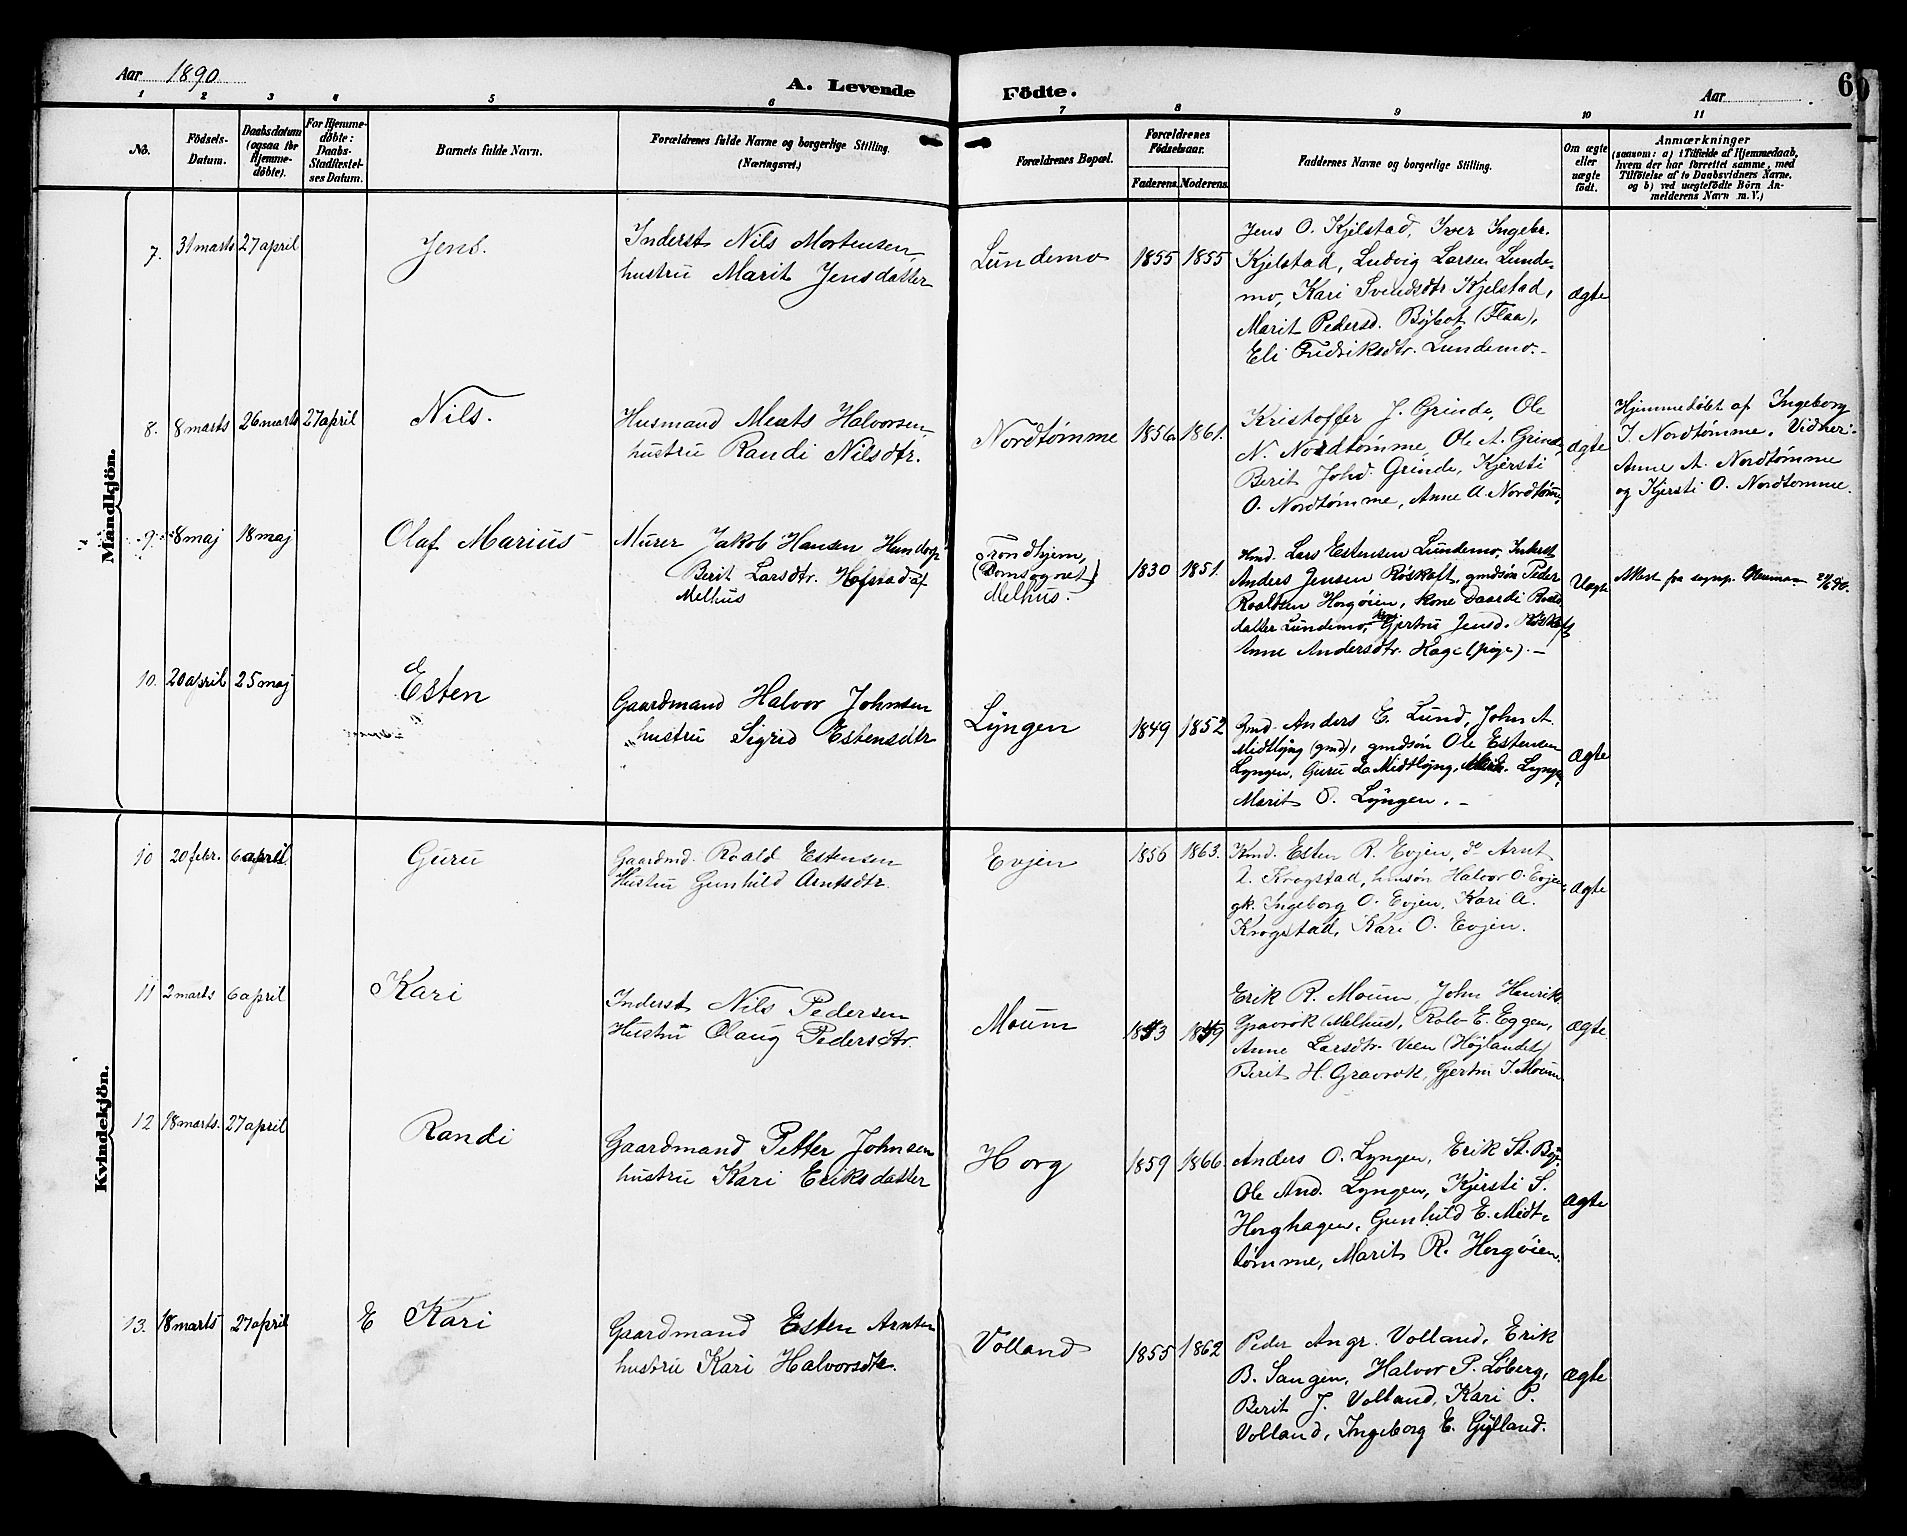 Aar 1890
A. Levende Födte.
Aar
6
1 2 3 4 5 6 7 8 9 10 11
No.
Födsels-Datum.
Daabsdatum (ogsaa for Hjemmedöbte).
For Hjemmedöbte: Daabs-Stadfestelses Datum.
Barnets fulde Navn.
Forældrenes fulde Navne og borgerlige Stilling. (Næringsvei.)
Forældrenes Bopæl.
Forældrenes Födselsaar.
Faderens. Moderens.
Faddernes Navne og borgerlige Stilling.
Om ægte eller uægte födt.
Anmærkninger
(saasom: a) i Tilfælde af Hjemmedaab, hvem der har forrettet samme, med Tilföielse af to Daabsvidners Navne. og b) ved uægtefödte Börn Anmelderens Navn m. V.)
Mandkjön.
7. 31 marts 27 april
Jens.
Inderst Nils Mortensen,
hustru Marit Jensdatter
Lundemo
1855 1855
Jens O. Kjelstad, Iver Ingebr.
Kjelstad, Ludvig Larsen Lunde-
mo, Kari Svendsdtr Kjelstad,
Marit Pedersd. Böbot (Flaa),
Eli Fredriksdtr. Lundemo.-
ægte
8. 8 marts 26 marts 27 april
Nils.
Husmand Ments Halvorsen,
hustru Randi Nilsdtr.
Nordtømme
1856 1861.
Kristoffer J. Grinde, Ole
N. Nordtømme, Ole A. Grinde,
Berit Johd. Grinde, Kjersti
O. Nordtømme, Anne A. Nordtømme
ægte
Hjemmedøbt af Ingeborg
I. Nordtømme. Vidner:
Anne A. Nordtømme
og Kjersti O. Nordtomme.
9. 8 maj 18 maj
Olaf Marius
Murer Jakob Hansen
Berit Larsdtr. Hofstad af
Melhus
Trondhjem,
(Domsognet)
Melhus.
1830 1851.
Lars Estensen Lundemo, Inderst
Anders Jensen Röskaft, gmdsön Peder
Roaldsen Horgöien, kone
datter Lundemo, Gjertru Jensd. Röskaft
Anne Andersdtr. Hage (pige).-
Uægte
Attest fra
10. 20 april 25 maj
Esten
Gaardmand Halvor Johnsen
hustru Sigrid Estensdtr
Lyngen
1849 1852
Gmd. Anders E. Lund, John A.
Midtlyng (gmd), gmdsön Ole Estensen
Lyngen, Guru L. Midtlyng,
Marit O. Lyngen.-
ægte
Kvindekjön.
10 20 febr. 6 april
Guru
Gaardmd. Roald Estensen
Hustru Gunhild Arntsdtr.
Evjen
1856 1863.
Kmd. Esten R. Evjen, do Arnt
A. Krogstad, Halvor O. Evjen,
gk. Ingeborg O. Evjen, Kari A.
Krogstad, Kari O. Evjen.
ægte
11 2 marts 6 april
Kari
Inderst Nils Pedersen
Hustru Olaug Pedersdtr.
Moum
1853 1859
Erik R. Moum, John Henriks.
Gravrok (Melhus), Rolv E. Eggen,
Anne Larsdtr. Veen (Højlandet)
Berit H. Gravrok, Gjertru I. Moum.
ægte
12 18 marts. 27 april
Randi
Gaardmand Petter Johnsen
hustru Kari Eriksdatter
Horg
1859 1866.
Anders O. Lyngen, Erik St. By,
Ole And. Lyngen, Kjersti S.
Horghagen, Gunhild E. Midt-
tømme, Marit R. Horgöien.
ægte
13. 18 marts 27 april
E Kari
Gaardmand Esten Arnten
hustru Kari Halvorsdtr.
Volland
1855 1862
Peder Angr. Volland, Erik
B. Sangen, Halvor P. Løberg,
Berit J. Volland, Kari P.
Volland, Ingeborg E. Gylland.
ægte